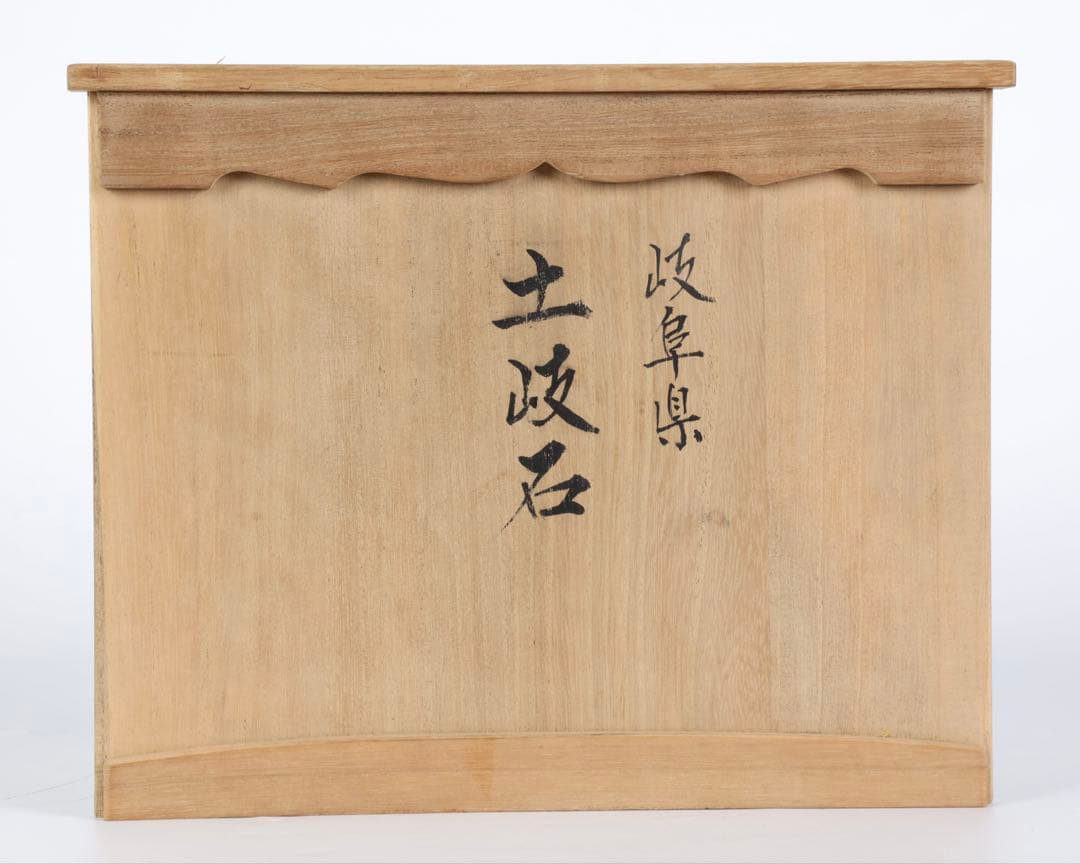 岐阜県
土岐石